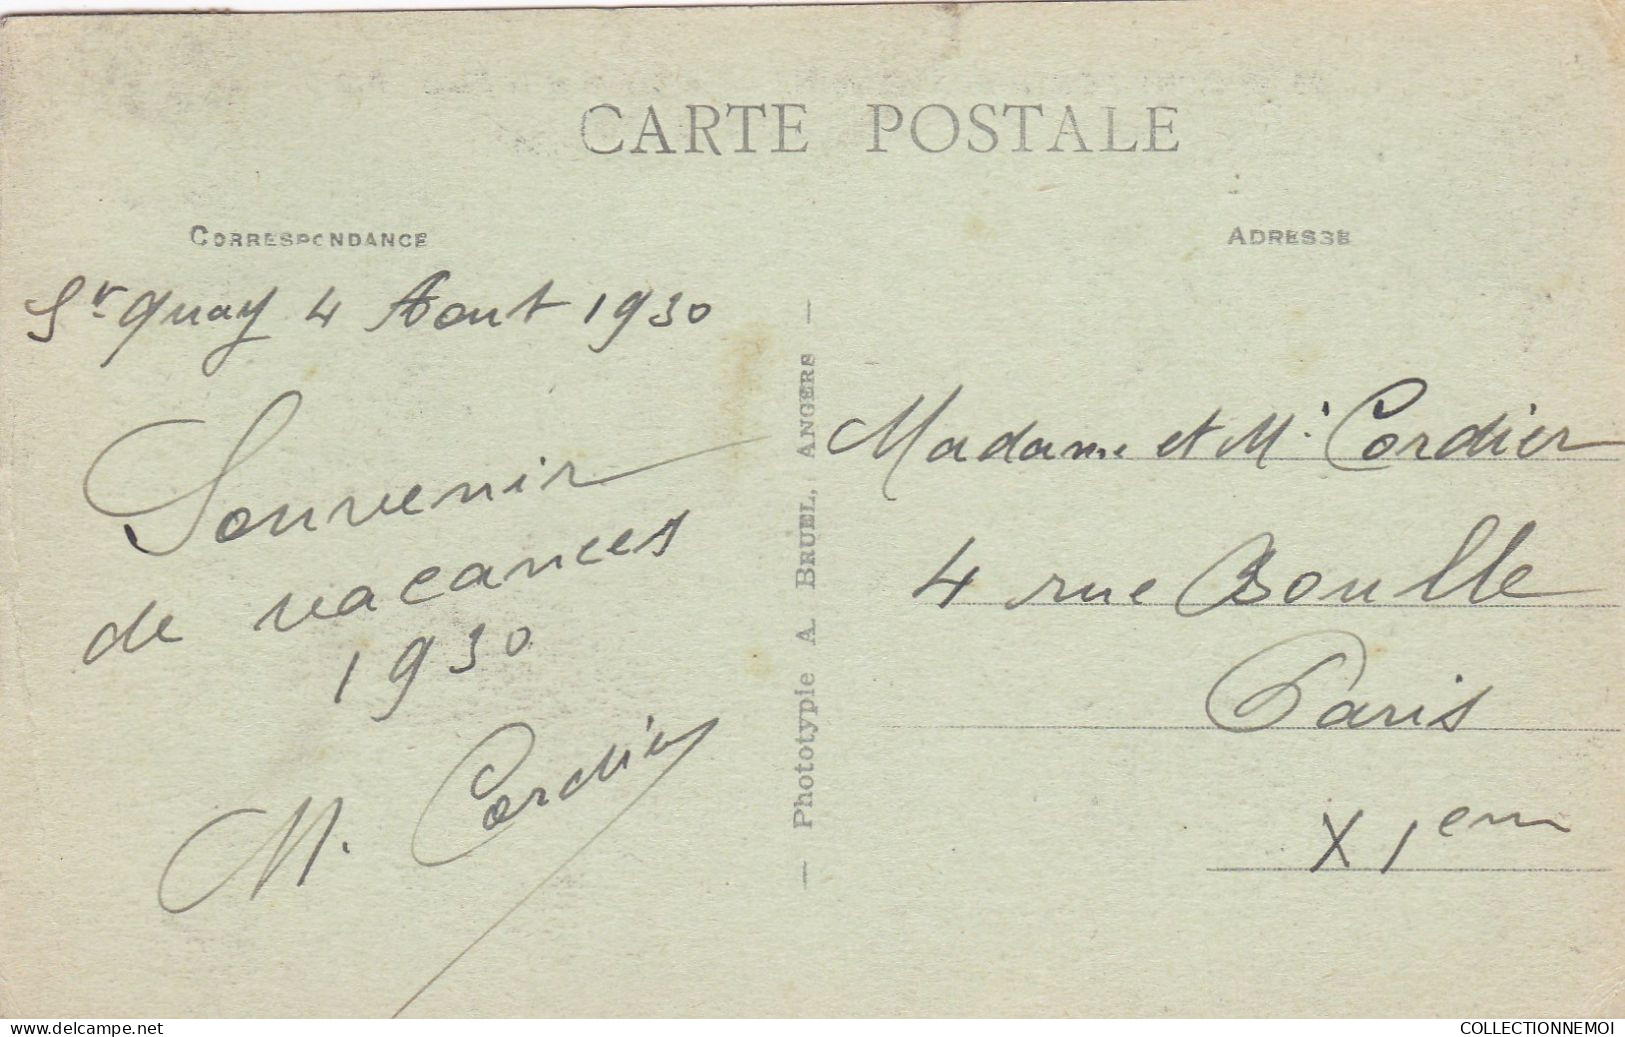 CARTE POSTALE
CORRESPONDANCE
St Quay 4 Aout 1930
Souvenir
de vacances
1930
M. Cordier
— Phototypie A. BRUEL, ANGERS —
ADRESSE
Madame et Mr Cordier
4 rue Boulle
Paris
XIem
www.delcampe.net
COLLECTIONNEMOI